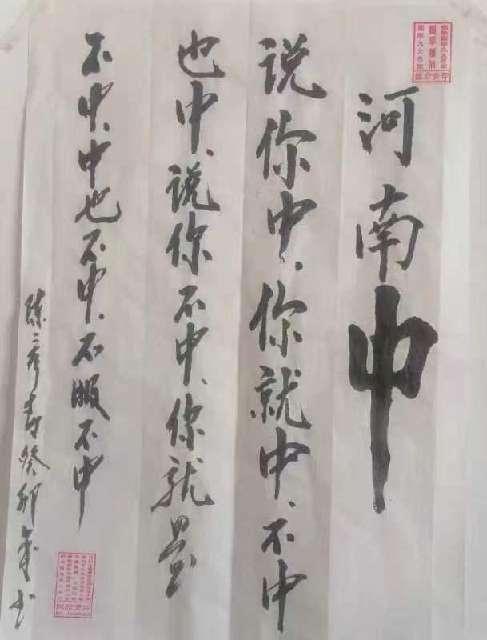 河南中
说你中、你就中、不中
也中、说你不中、你就是
不中、中也不中、不服不中
癸卯年书